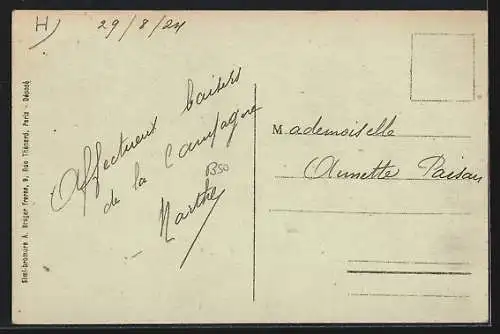 H)
29/8/24
Affectueux baisers
de la Campagne
B50
- Marthe
Mademoiselle
Annette Paisan
Simi-bromure A. Breger frères, 9, Rue Thénard, Paris - Déposé